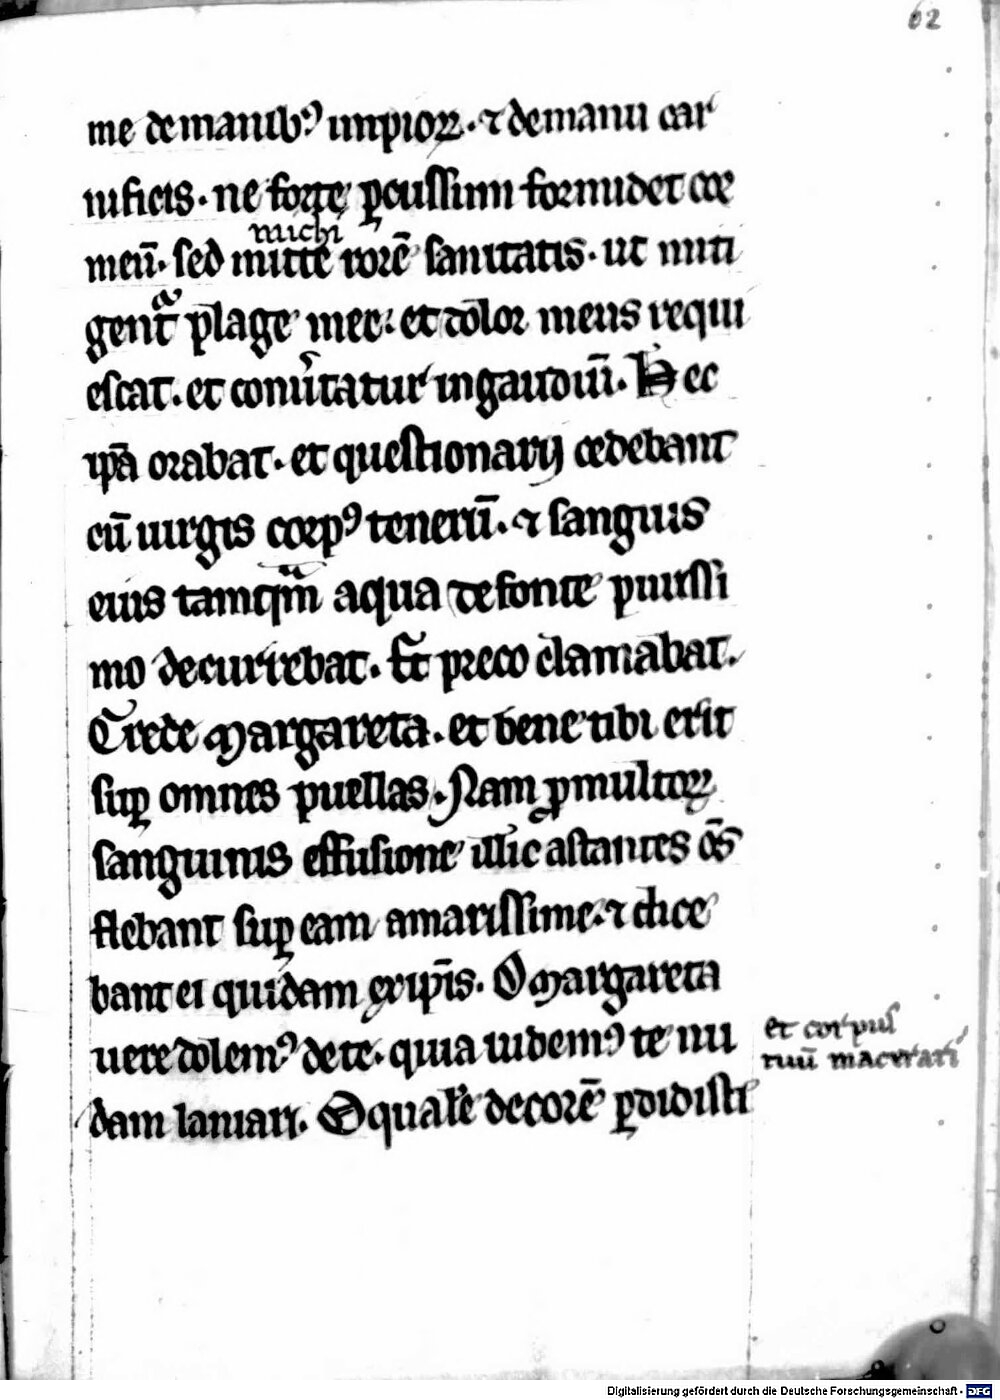 62
me de manib⁹ impioꝝ. ⁊ de manu car
nificis. ne forte ꝑcussum formidet cor
michi
meū. sed mitte rorē sanitatis. ut miti
gentᵃ plage mee. et dolor meus requi
escat. et conũtatur in gaudiū. Hec
ip̄a orabat. et questionarij cedebant
cū uirgis corp⁹ tenerū. ⁊ sanguis
eius tamqͫm aqua de fonte purissi
mo decurrebat. Et preco clamabat.
Crede Margareta. et bene tibi erit
suꝑ omnes puellas. Nam ꝓ multoꝝ
sanguinis effusione illic astantes om̄s
flebant suꝑ eam amarissime. ⁊ dice
bant ei quidam ex ip̄is. O Margareta
uere dolem⁹ de te. quia uidem⁹ te nu
et corpus
tuū macerari
dam laniari. O qualē decorē ꝑdidisti
Digitalisierung gefördert durch die Deutsche Forschungsgemeinschaft - DFG